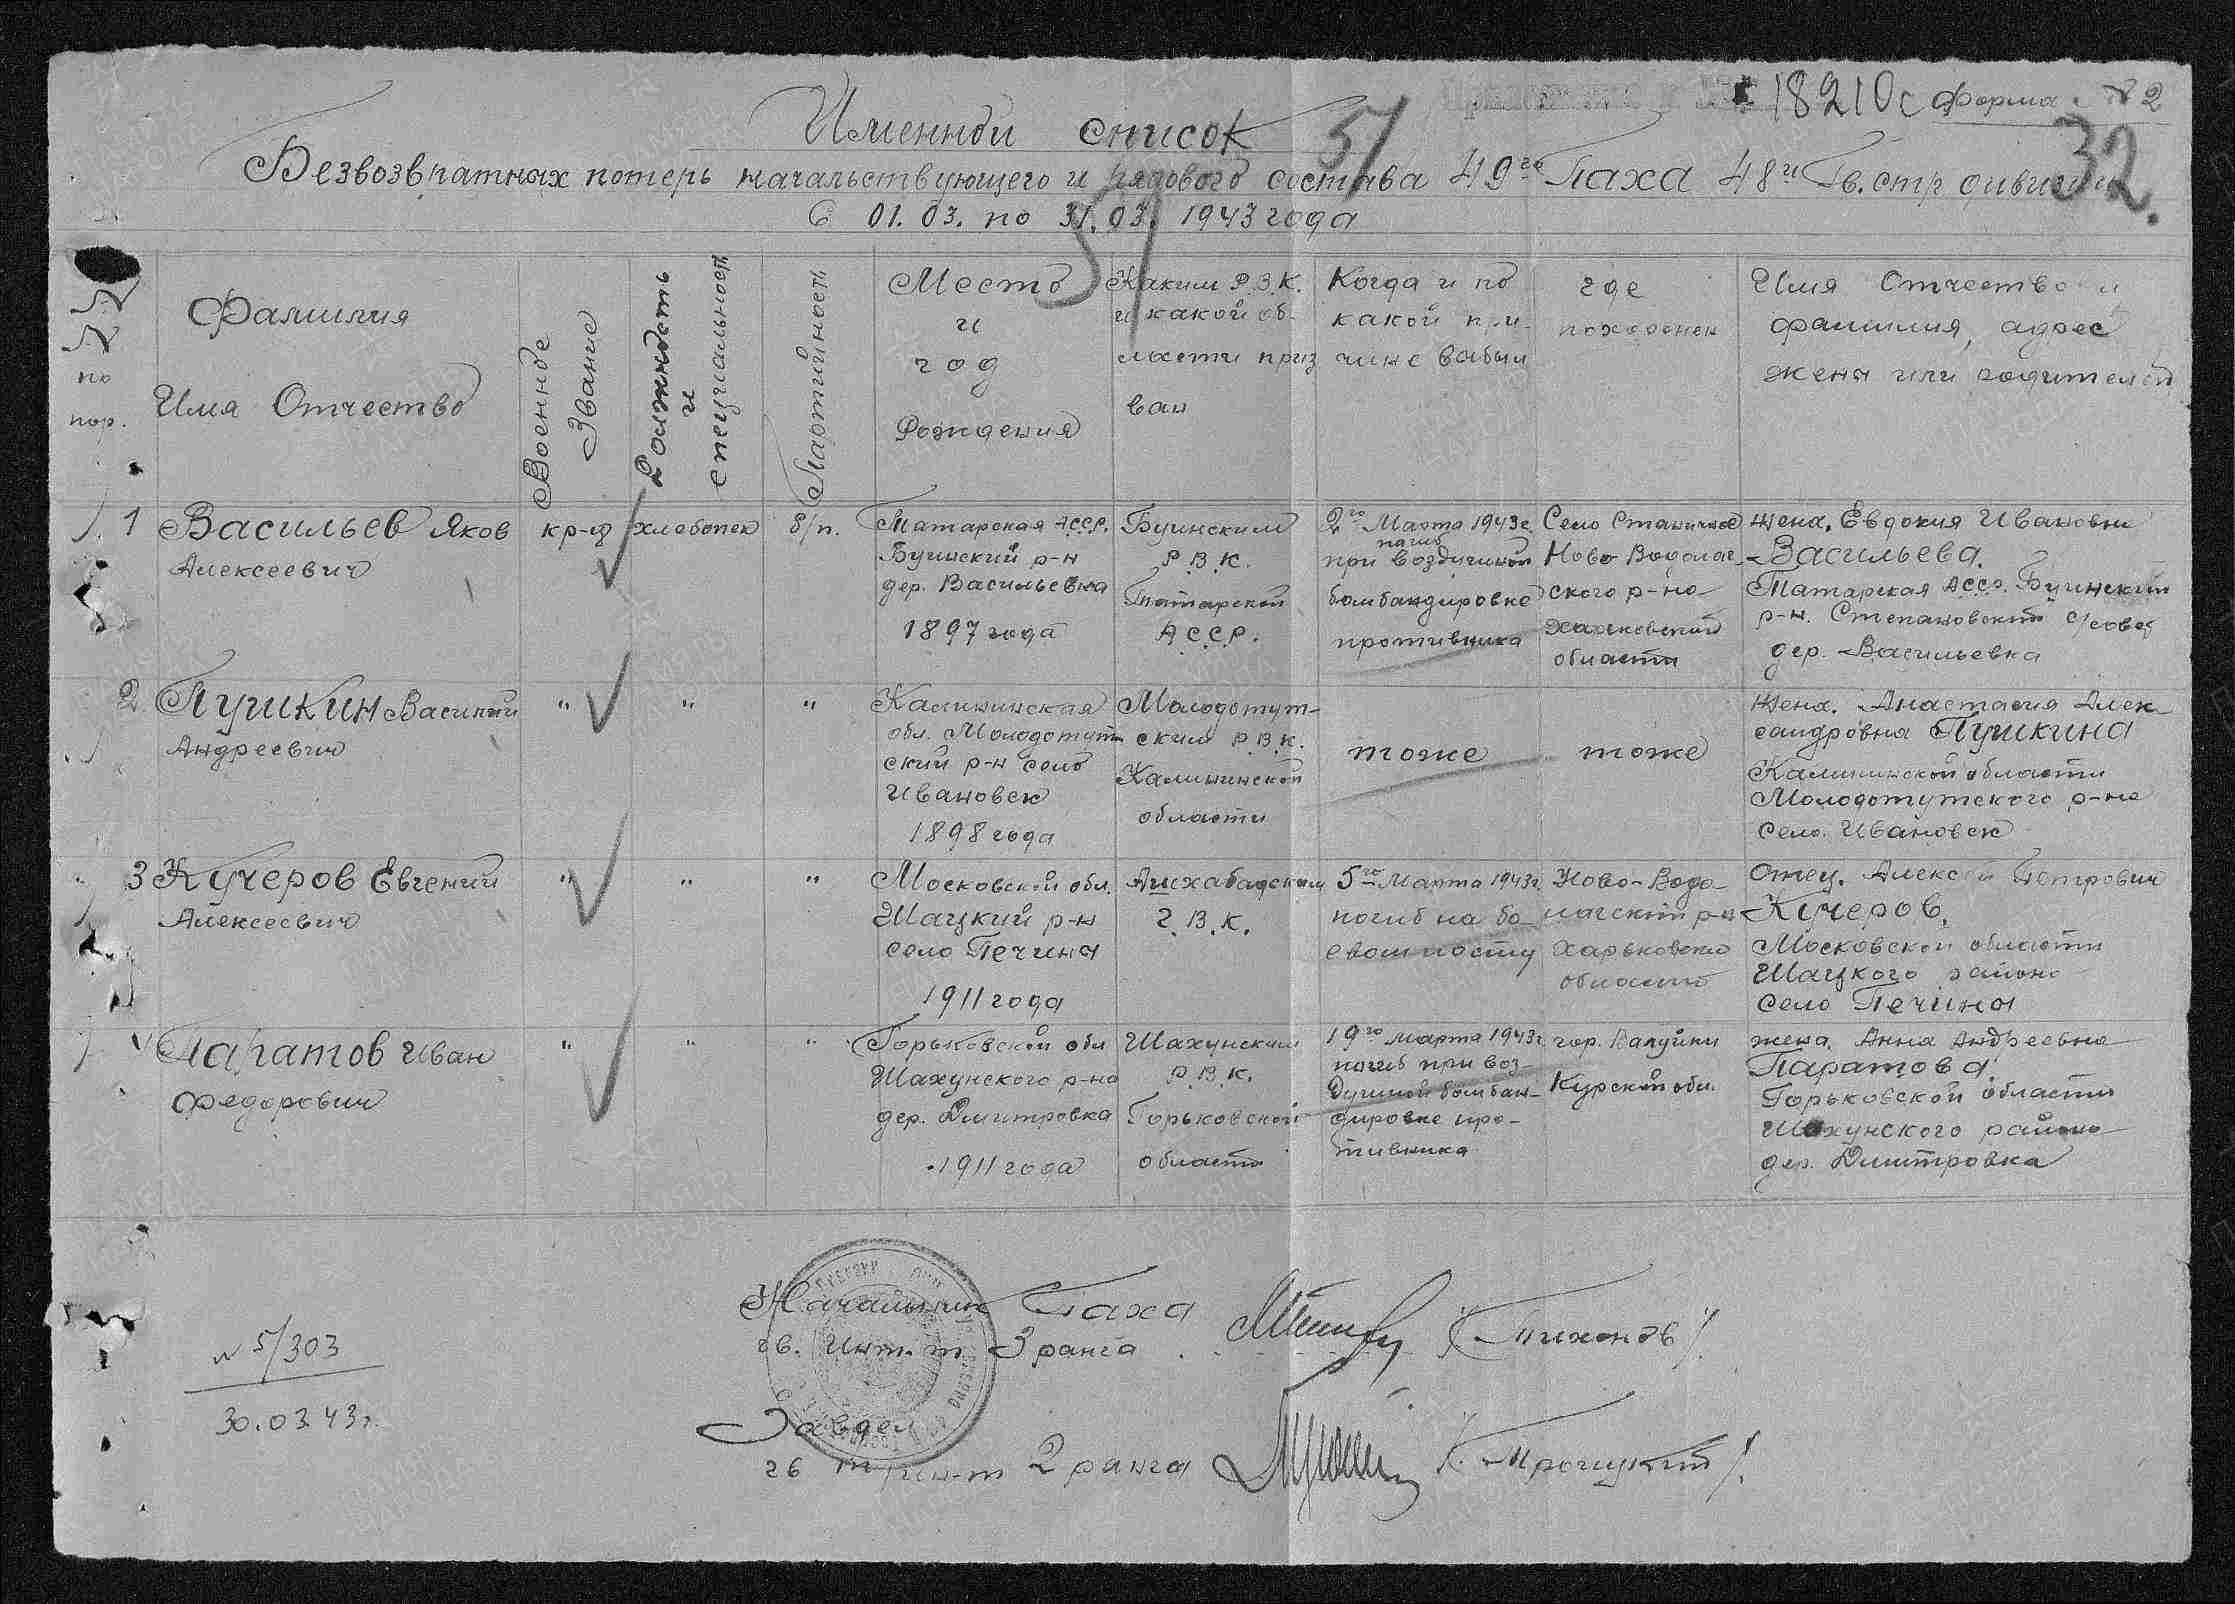 18210с Форма № 2
32.
Именной список
51
Безвозвратных потерь начальствующего и рядового состава 49го Паха 48й Гв. стр дивизии
С 01.03. по 31.03. 1943 года
51
№ № по пор.
Фамилия
Имя Отчество
Военное Звание
Должность и специальность
Партийность
Место
и
год
Рождения
Каким Р.В.К.
и какой об-
ласти приз
ван
Когда и по
какой при-
чине выбыл
где
похоронен
Имя Отчество и
фамилия, адрес
жены или родителей
1
Васильев Яков
Алексеевич
кр-ц
хлебопек
б/п.
Татарская АССР.
Буинский р-н
дер. Васильевка
1897 года
Буинским
Р.В.К.
Татарской
АССР.
2го Марта 1943г
погиб
при воздушной
бомбандировке
противника
Село Станичное
Ново Водолаг-
ского р-на
Харьковской
области
жена. Евдокия Ивановна
Васильева.
Татарская АССР. Буинский
р-н. Степановский с/совет
дер. Васильевка
2
Пушкин Василий
Андреевич
"
"
"
Калининская
обл. Молодотут
ский р-н село
Ивановск
1898 года
Молодотут-
ским Р.В.К.
Калининской
области
тоже
тоже
жена. Анастасия Алек
сандровна Пушкина
Калининской области
Молодотутского р-на
село. Ивановск
3
Кучеров Евгений
Алексеевич
"
"
"
Московской обл.
Шацкий р-н
село Печины
1911 года
Ашхабадским
Г.В.К.
5го марта 1943г
погиб на бо
евом посту
Ново-Водо-
лагский р-н
Харьковской
области
Отец. Алексей Петрович
Кучеров.
Московской области
Шацкого района
село Печины
Паратов Иван
Федорович
"
"
"
Горьковской обл
Шахунского р-на
дер. Дмитровка
1911 года
Шахунским
Р.В.К.
Горьковской
области
19го марта 1943г
погиб при воз-
душной бомбан-
дировке про-
тивника
гор. Валуйки
Курской обл.
жена. Анна Андреевна
Паратова.
Горьковской области
Шахунского района
дер. Дмитровка
Начальник Паха
гв. Инт-т 3 ранга
/Тихонов/.
Завдел
гв т/инт-т 2 ранга
/.Троицкий/.
№ 5/303
30.03 43г.